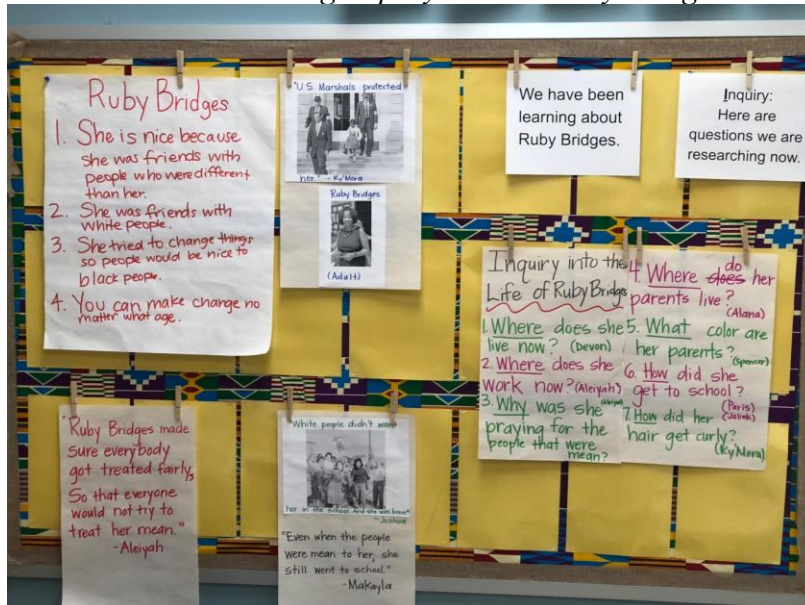 Ruby Bridges
1. She is nice because
she was friends with
people who were different
than her.
2. She was friends with
white people.
3. She tried to change things
so people would be nice to
black people.
4. You can make change no
matter what age.
"U.S. Marshals protected
her." - Ky'Mora
Ruby Bridges
(Adult)
We have been
learning about
Ruby Bridges.
Inquiry:
Here are
questions we are
researching now.
Inquiry into the
Life of Ruby Bridges
1. Where does she
live now? (Devon)
2. Where does she
work now? (Aleiyah)
3. Why was she
praying for the
people that were
mean?
do
4. Where does her
parents live?
(Alana)
5. What color are
her parents? (Spencer)
6. How did she
get to school?
(Paris)
(Jaliek)
7. How did her
hair get curly?
(Ky'Mora)
"Ruby Bridges made
sure everybody
got treated fairly,
So that everyone
would not try to
treat her mean."
-Aleiyah
"White people didn't want
her in the school. And she was brave"
-Joshua
"Even when the people
were mean to her, she
still went to school."
-Makayla